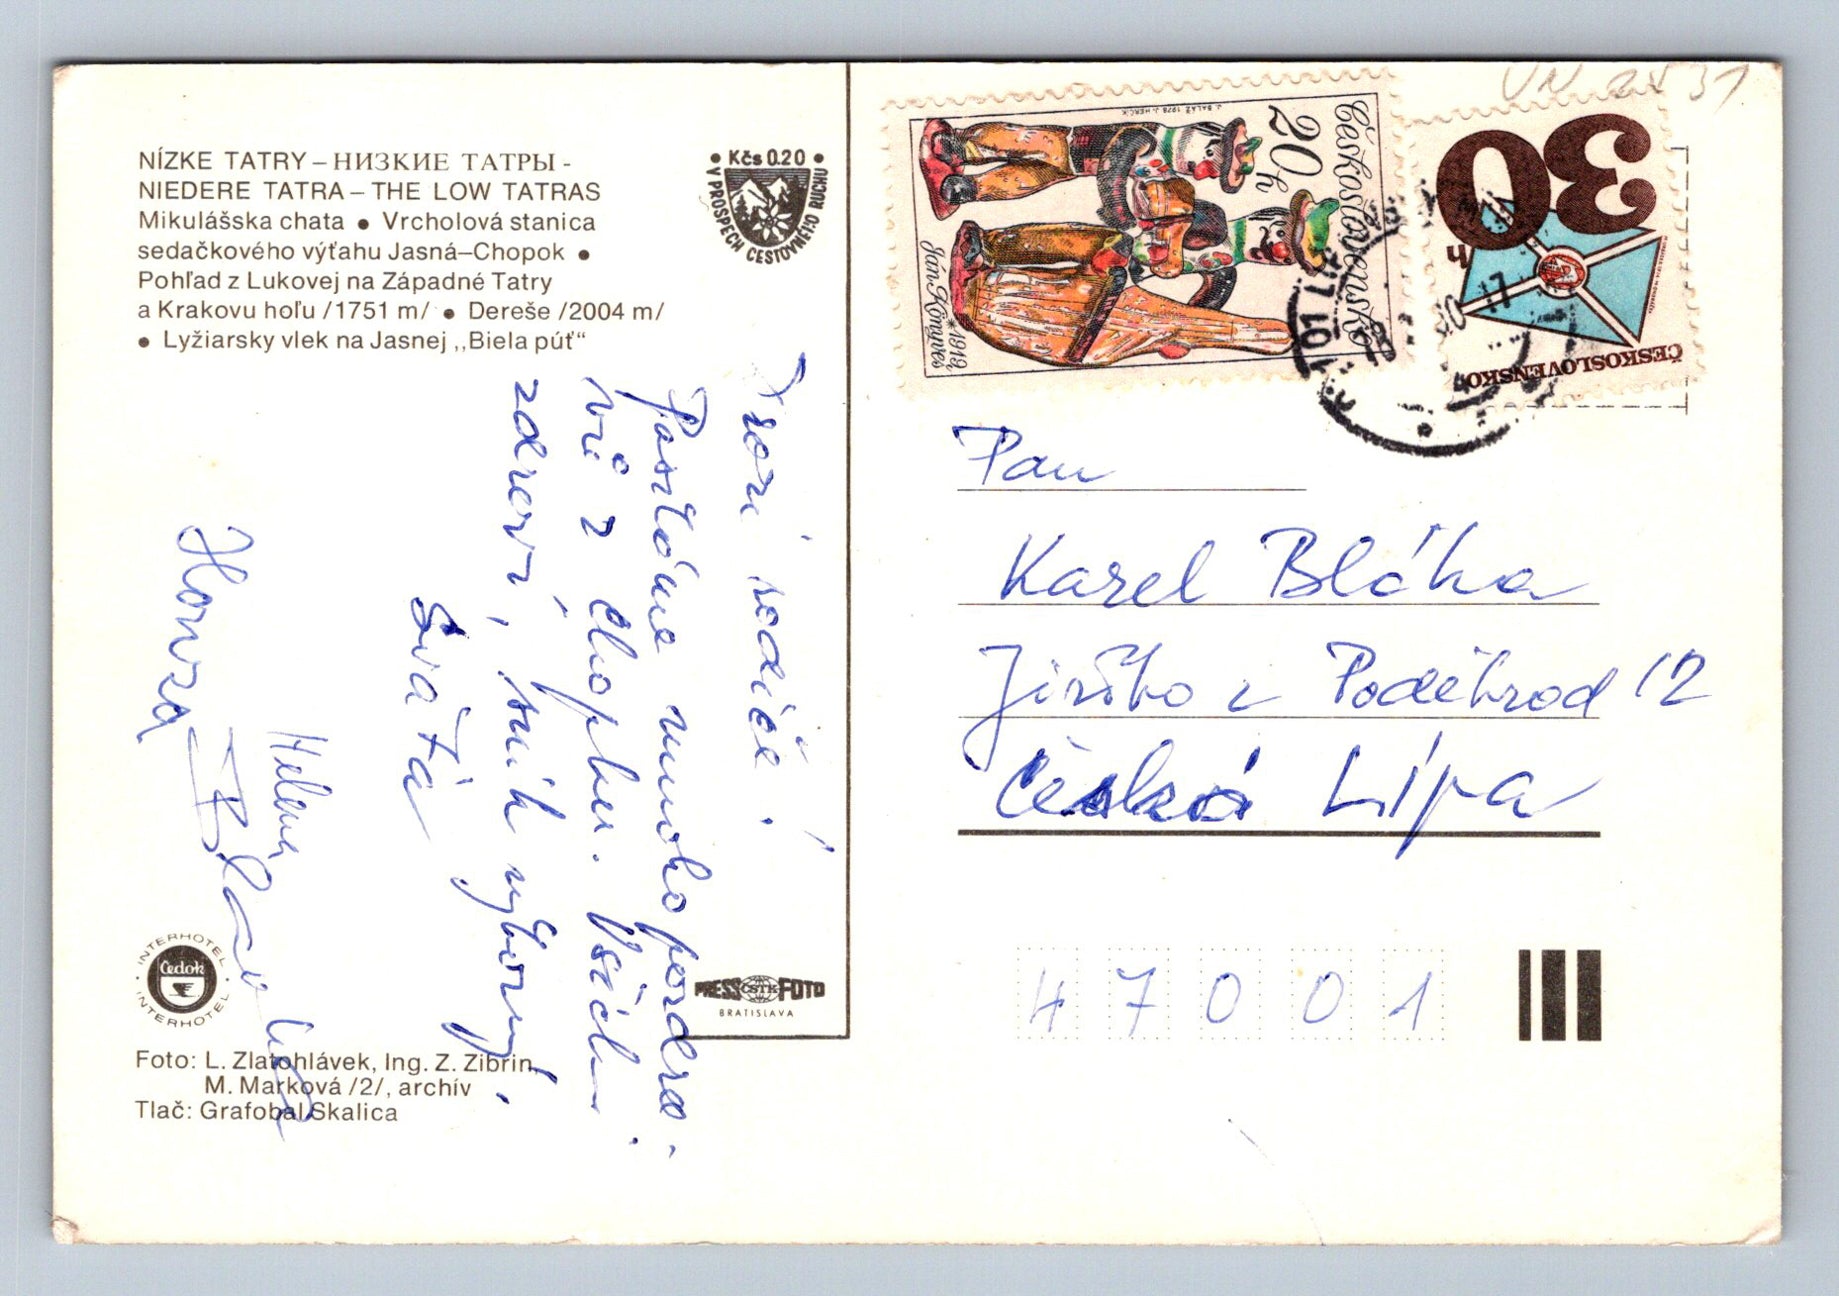 NÍZKE TATRY – НИЗКИЕ ТАТРЫ -
NIEDERE TATRA – THE LOW TATRAS
Mikulášska chata ● Vrcholová stanica
sedačkového výťahu Jasná–Chopok ●
Pohľad z Lukovej na Západné Tatry
a Krakovu hoľu /1751 m/ ● Dereše /2004 m/
● Lyžiarsky vlek na Jasnej ,,Biela púť"
● Kčs 0.20 ●
V PROSPECH CESTOVNÉHO RUCHU
Drazí rodiče!
Posíláme mnoho pozdra-
vů z Chopku. Všichni
zdraví, sníh výborný,
Sváťa
Helena
Honza
INTERHOTEL
Čedok
INTERHOTEL
PRESS ČSTK FOTO
BRATISLAVA
Foto: L. Zlatohlávek, Ing. Z. Zibrin,
M. Marková /2/, archív
Tlač: Grafobal Skalica
Československo
20h
Ján Kőmüves *1919
J. BALÁŽ 1978 J. HERČÍK
30
h
ČESKOSLOVENSKO
Pan
Karel Bláha
Jiřího z Poděbrad 12
Česká Lípa
47001